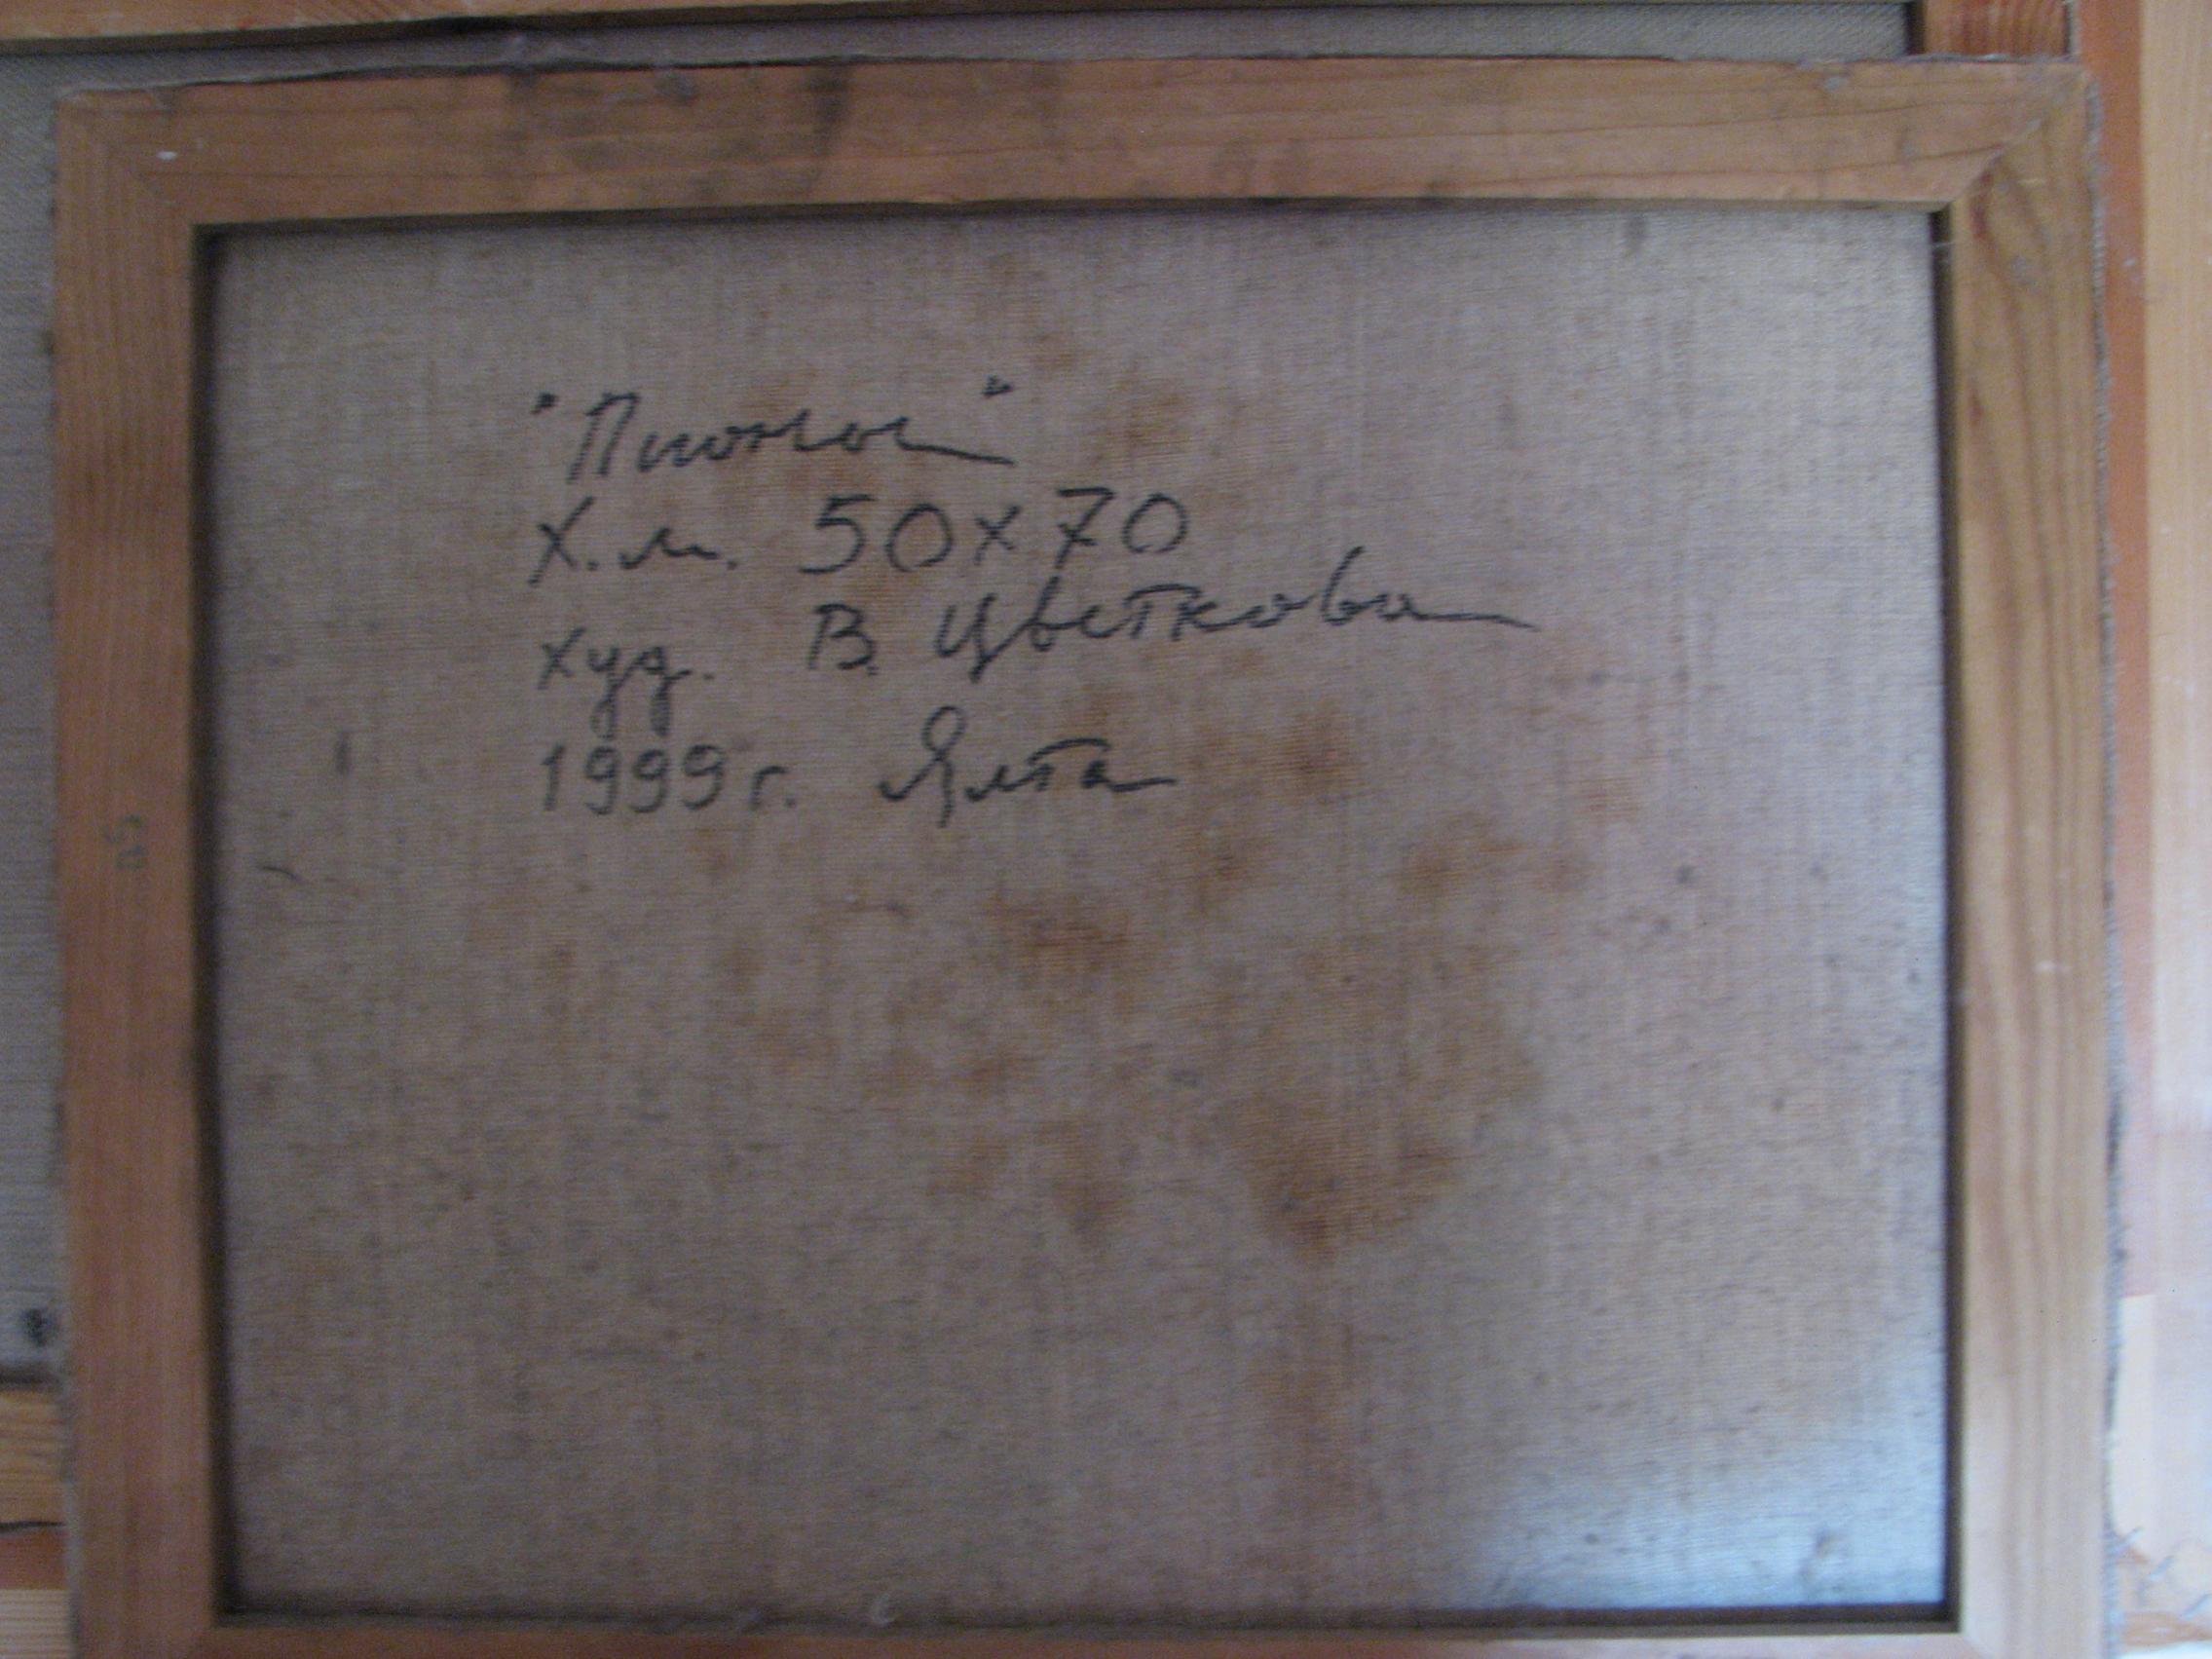 "Пионы"
Х.м. 50х70
худ. В. Цветкова
1999г. Ялта
50